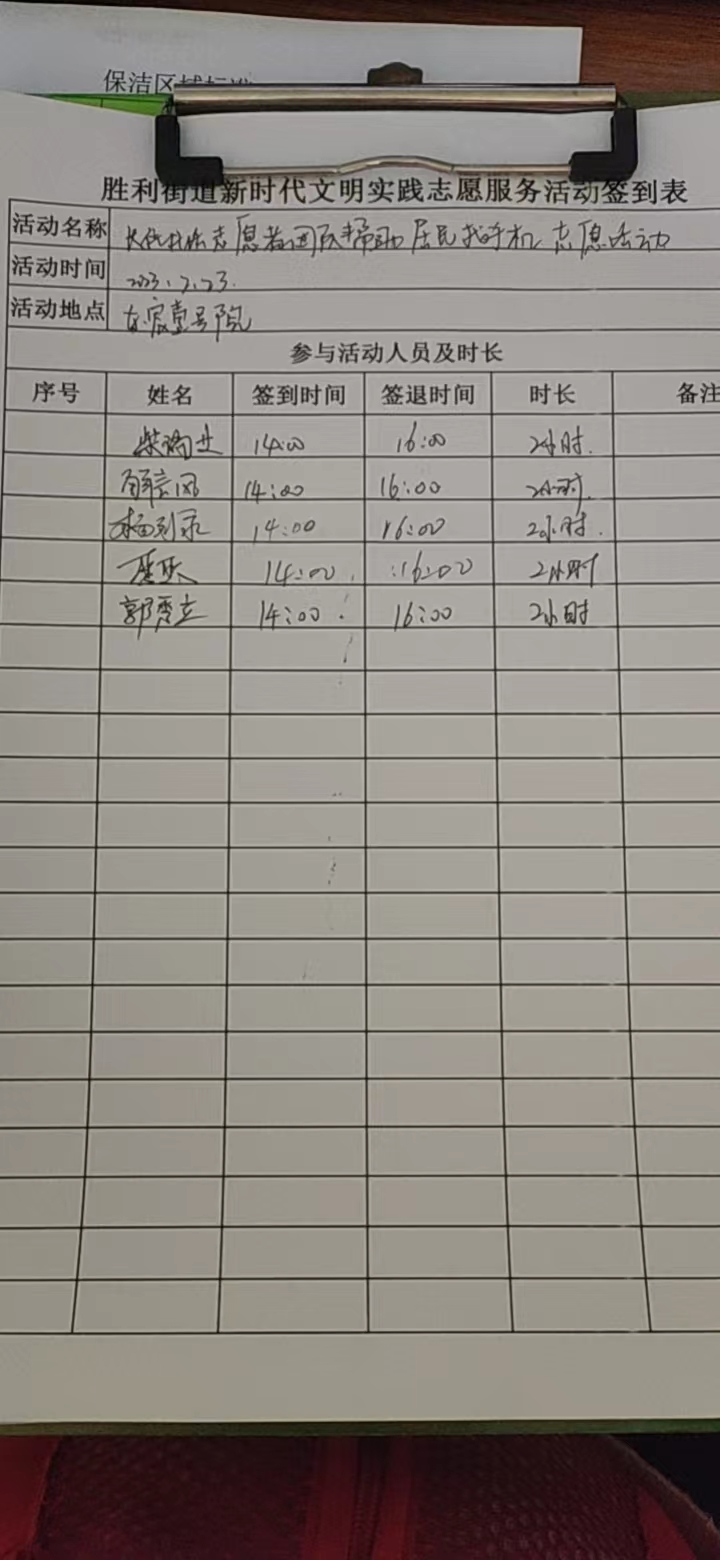 保洁区域标准
胜利街道新时代文明实践志愿服务活动签到表
活动名称 志愿者团队帮助居民找手机志愿活动
活动时间 2023.7.23.
活动地点 号院
参与活动人员及时长
序号 姓名 签到时间 签退时间 时长 备注
14:00 16:00 2小时.
14:00 16:00 2小时.
14:00 16:00 2小时.
14:00 16:00 2小时
郭秀立 14:00 16:00 2小时